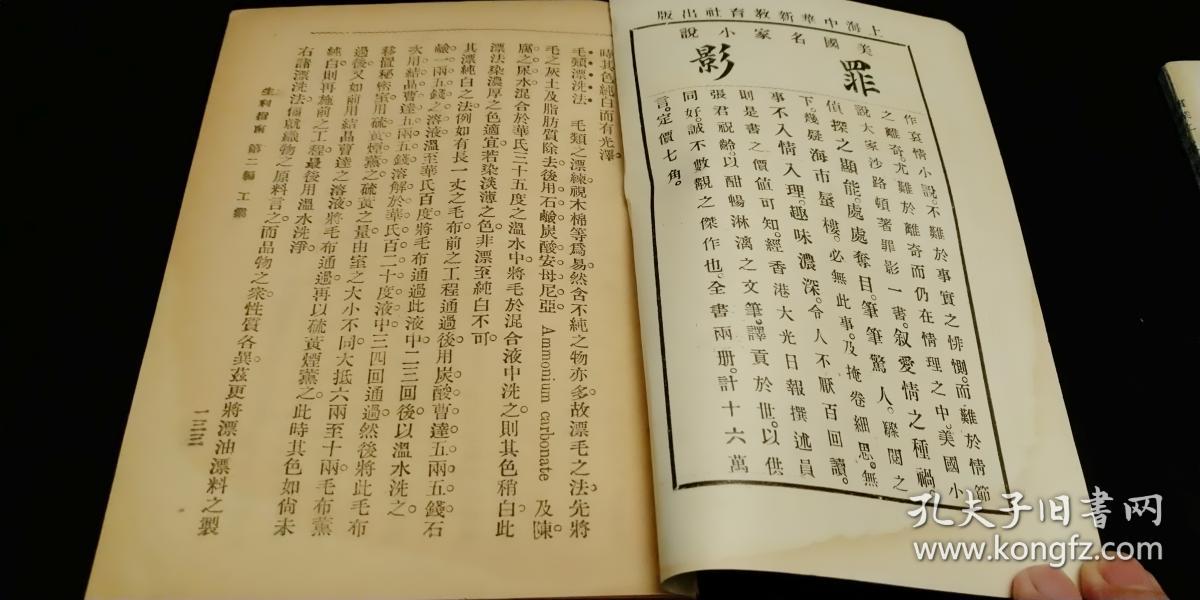 上海中華新教育社出版
美國名家小說
罪影
作哀情小說。不難於事實之悱惻。而難於情節
之離奇。尤難於離奇而仍在情理之中。美國小
說大家沙路頓著罪影一書。叙愛情之種禍
偵探之顯能。處處奪目。筆筆驚人。驟閱之
下。幾疑海市蜃樓。必無此事。及掩卷細思。無
事不入情入理。趣味濃深。令人不厭百回讀。
則是書之價值可知。經香港大光日報撰述員
張君祝齡。以酣暢淋漓之文筆。譯貢於世。以供
同好。誠不數觀之傑作也。全書兩册。計十六萬
言。定價七角。
時其色純白而有光澤。
毛類漂洗法 毛類之漂練視木棉等爲易。然含不純之物亦多。故漂毛之法。先將
毛之灰土及脂肪質除去。後用石鹼炭酸安母尼亞 Ammonium carbonate 及陳
腐之尿水混合於華氏三十五度之溫水中。將毛於混合液中洗之。則其色稍白。此
漂法染濃厚之色適宜。若染淡薄之色。非漂至純白不可。
其漂純白之法。例如有長一丈之毛布。前之工程通過後。用炭酸曹達五兩五錢。石
鹼一兩五錢之溶液。溫至華氏百度。將毛布通過此液中。二三回後。以溫水洗之。
次用結晶曹達五兩五錢溶解於華氏百二十度液中。三四回通過。然後將此毛布
移置秘密室。用硫黃煙薰之。硫黃之量由室之大小不同。大抵六兩至十兩。毛布薰
過後。又如前用結晶曹達之溶液。將毛布通過。再以硫黃煙薰之。此時其色如尙未
純白。則再施前之工程。最後用溫水洗淨。
右諸漂洗法。僅就織物之原料言之。而品物之衆。性質各異。茲更將漂油漂料之製
生利指南 第二編 工業
一三三
孔夫子旧书网
www.kongfz.com